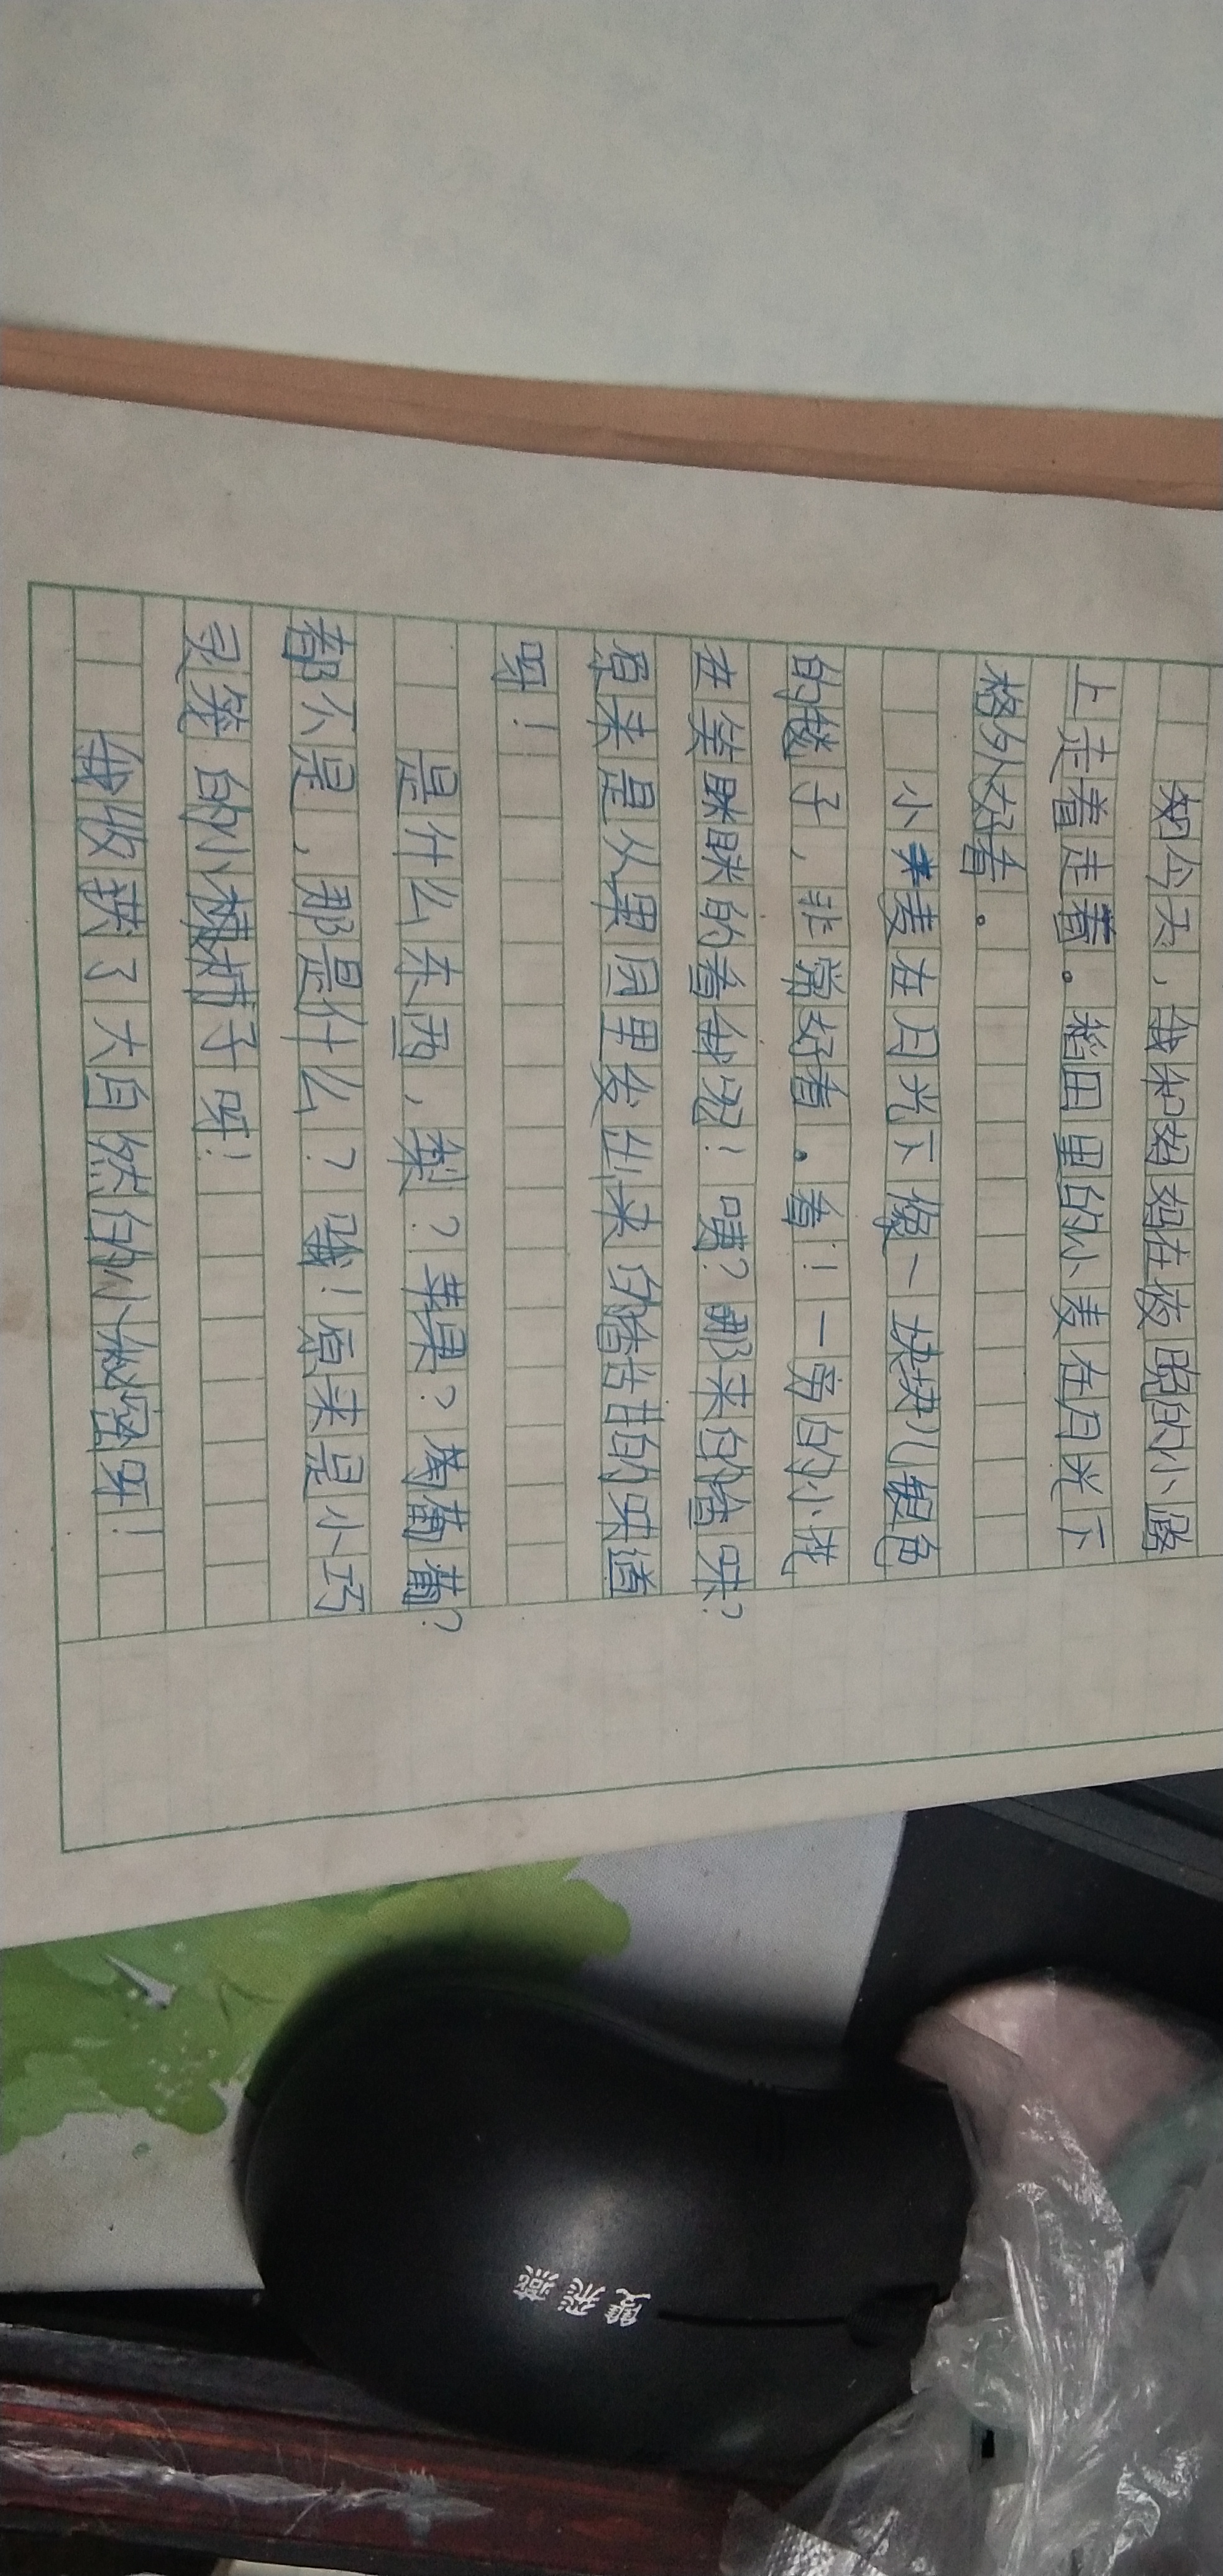 如今天,我和妈妈在夜晚的小路
上走着走着。稻田里的小麦在月光下
格外好看。
小麦在月光下像一块块儿银色
的毯子,非常好看。看!一旁的小花
在笑眯眯的看我况!咦?那来的香味?
原来是从果园里发出来的甜甜的味道
呀!
是什么东西,梨?苹果?葡萄?
都不是,那是什么?哦!原来是小巧
灵笼的小辣椒子呀!
我收获了大自然的小秘密呀!
雙飛燕